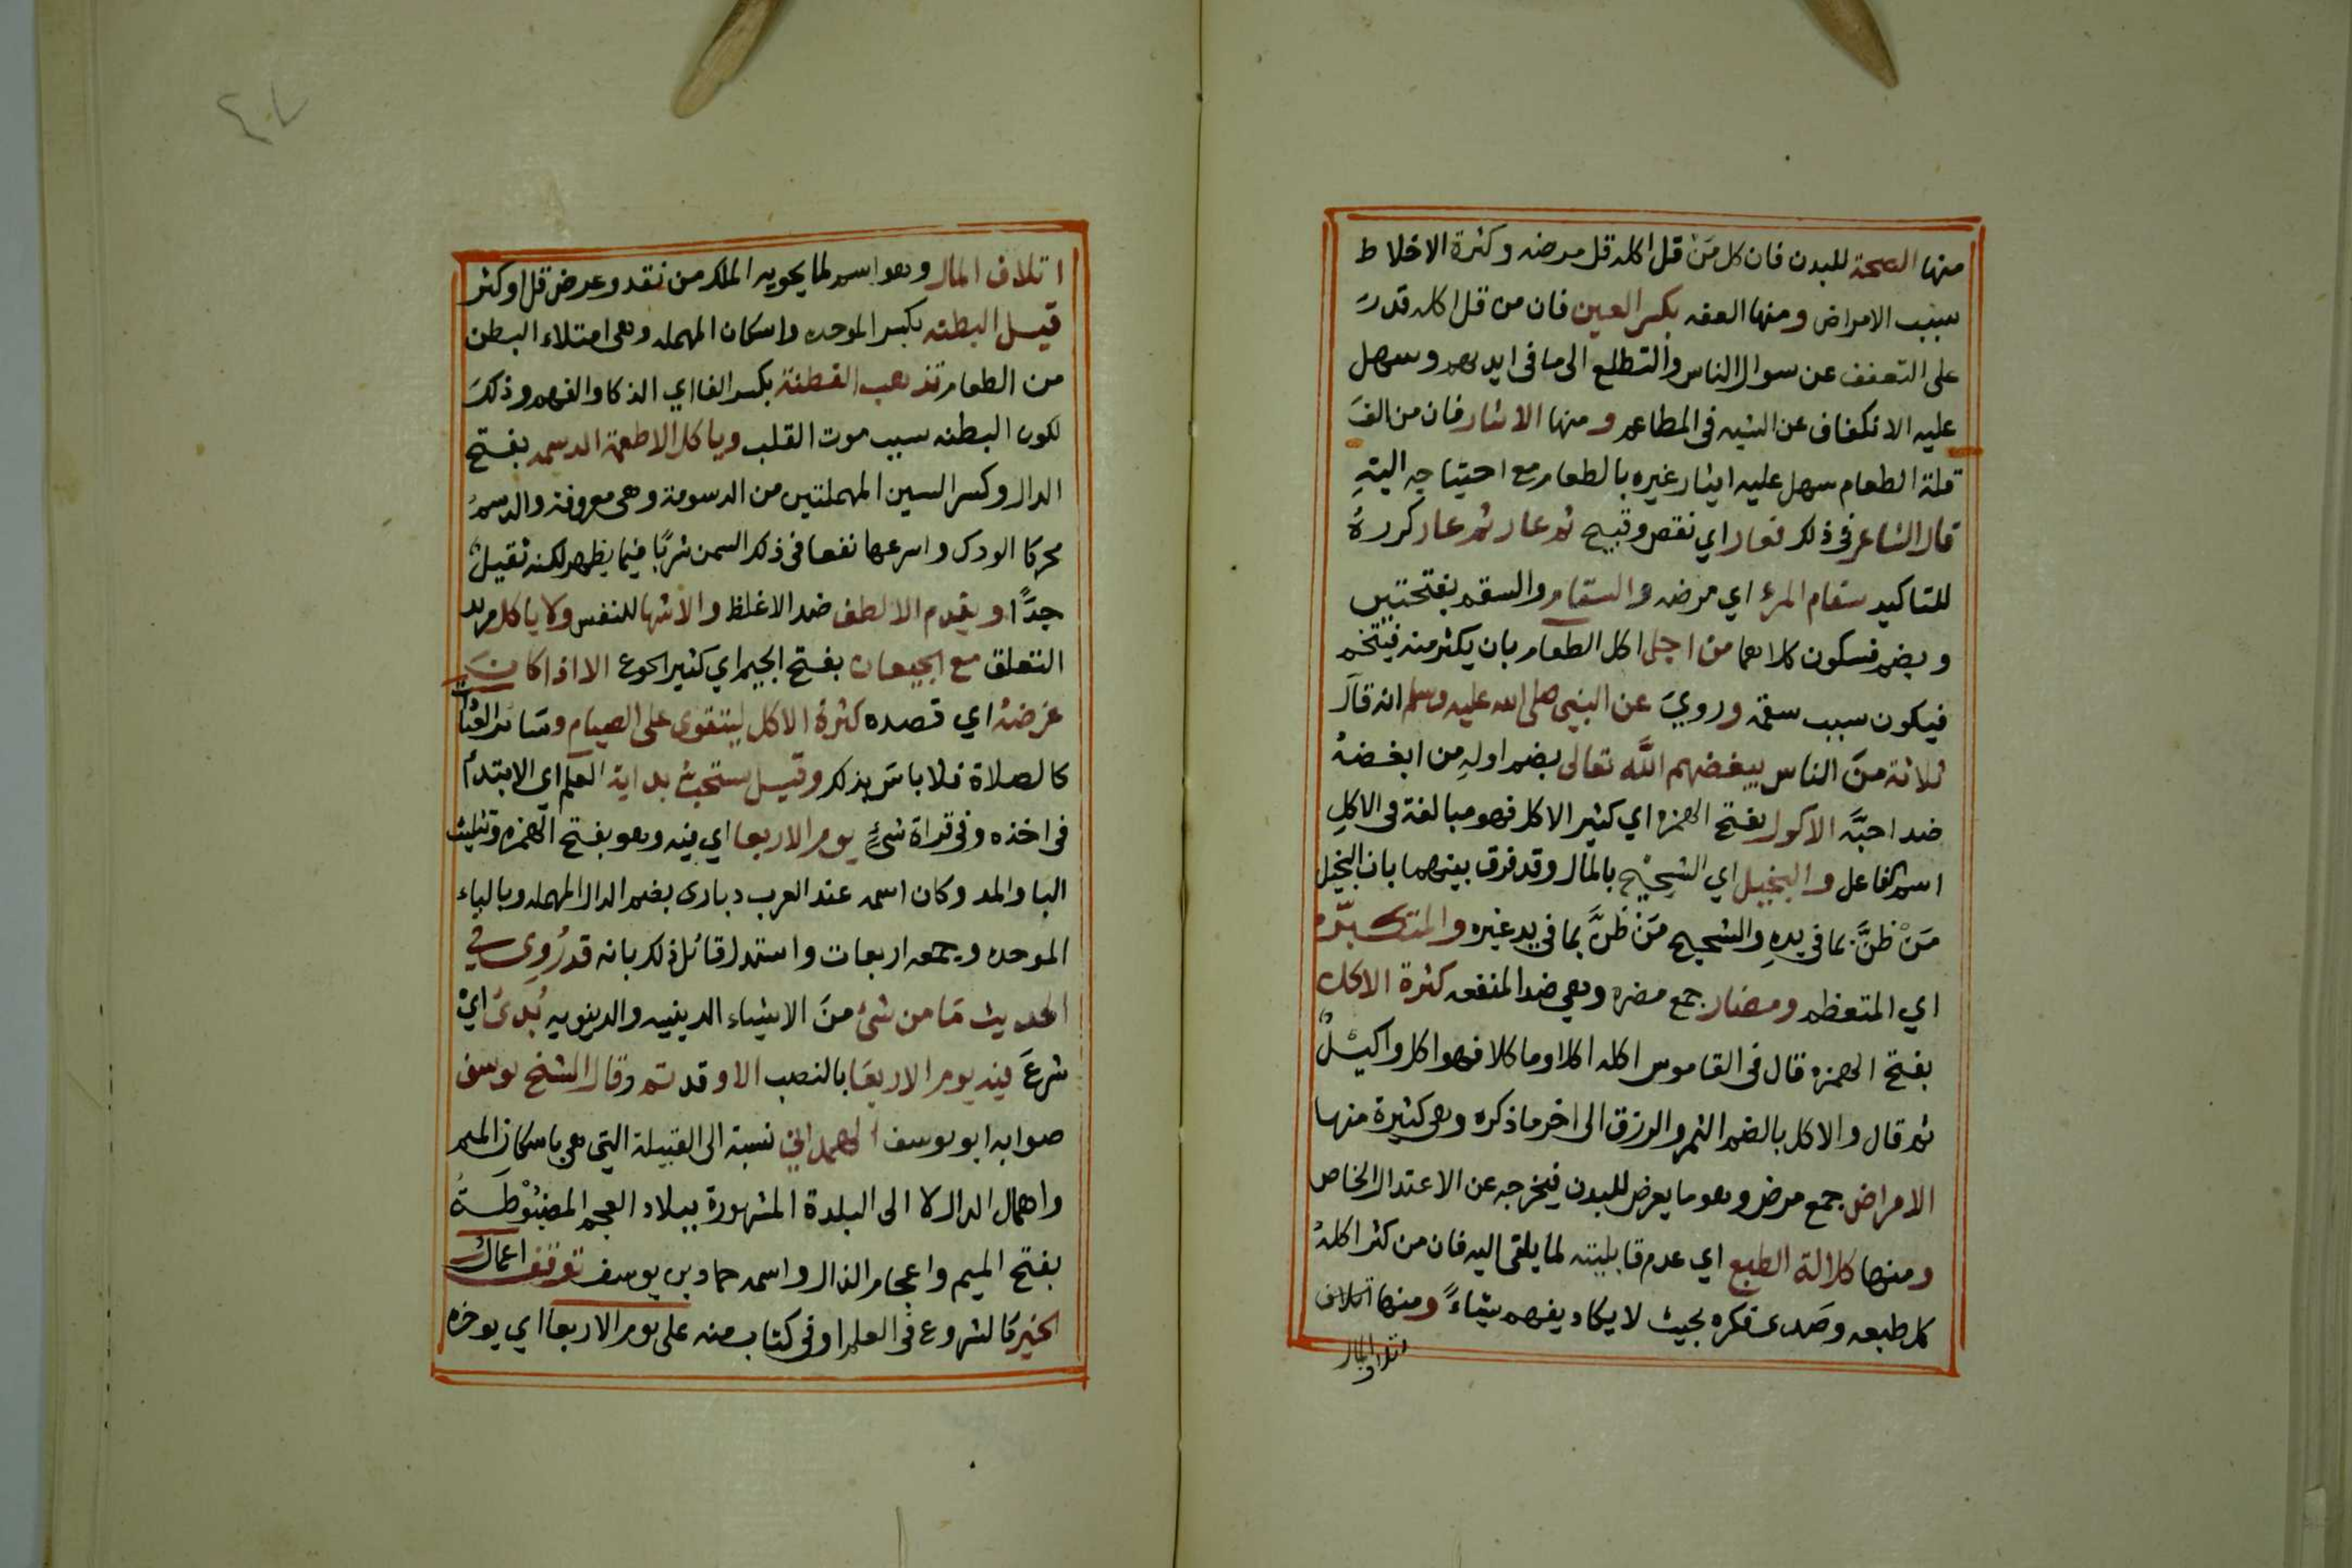 منها الصحة للبدن فان كل مَنْ قل اكله قل مرضه وكثرة الاخلاط
سبب الامراض ومنها العفه بكسر العين فان من قل اكله قدر
على التعفف عن سوال الناس والتطلع الى ما فى ايديهم وسهل
عليه الانكفاف عن الشبه فى المطاعم ومنها الاىثار فان من الف
قلة الطعام سهل عليه ايثار غيره بالطعام مع احتياجه اليهِ
قال الشاعر فى ذلك فعار اي نقص وقبيح ثم عار ثم عار كررهُ
للتاكيد سقام المرءِ اي مرضه والسقام والسقم بفتحتين
وبضم فسكون كلاهما من اجل اكل الطعام بان يكثر منه فيتخم
فيكون سبب سقمه ورويَ عن النبى صلى الله عليه وسلم انه قال
ثلاثة منَ الناس يبغضهم اللَّه تعالى بضم اولهِ من ابغضهُ
ضد احبَّه الاكول بفتح الهمزه اي كثير الاكل فهو مبالغة فى الاكلِ
اسم الفاعل والبخيل اي الشحِيْح بالمال وقد فرق بينهما بان البخيل
مَنْ ظنَّ بما في يدهِ والشحيح مَنْ ظنَّ بما في يد غيره والمتكبّر
اي المتعظم ومضار جمع مضره وهي ضد المنفعه كثرة الاكل
بفتح الهمزه قال فى القاموس اكله اكلا وماكلا فهو اكل واكيلٌ
ثم قال والاكل بالضم الثمر والرزق الى اخر ما ذكره وهى كثيرة منها
الامراض جمع مرض وهو ما يعرض للبدن فيخرجه عن الاعتدال الخاص
ومنها كلالة الطبع اي عدم قابليته لما يلقى اليه فان من كثر اكلهُ
كل طبعه وصدى فكره بحيث لا يكاد يفهم شياءً ومنها اتلاف
اتلاف المال
٤٧
اتلاف المال وهو اسم لما يحويه الملك من نقد وعرض قل او كثر
قيل البطنه بكسر الموحده واسكان المهمله وهى امتلاء البطن
من الطعام تذهب الفطنة بكسر الفا اي الذكا والفهم وذلكَ
لكون البطنه سبب موت القلب وياكل الاطعمة الدسمه بفتح
الدال وكسر السين المهملتين من الدسومة وهى معروفة والدسمُ
محركا الودك واسرعها نفعا فى ذلك السمن شربًا فيما يظهر لكنه ثقيلٌ
جدًّا ويقدم الالطف ضد الاغلظ والاشها للنفس ولا ياكل مريد
التعلق مع الجيعان بفتح الجيم اي كثير الجوع الا اذا كان
غرضهُ اي قصده كثرة الاكل ليتقوى على الصيام وسائر العبادات
كالصلاة فلا باس بذلك وقيل ستحب بداية العلم اي الابتداء
فى اخذه وفى قراة شئٍ يوم الاربعا اي فيه وهو بفتح الهمزه وتثليث
البا والمد وكان اسمه عند العرب دبارى بضم الدال المهمله وبالباء
الموحده وجمعه اربعات واستدل قائل ذلك بانه قد رُوِى في
الحديث مَا من شئ منَ الاشياء الدينيه والدنيويه بُدئ ايْ
شرعَ فيه يوم الاربعَا بالنصب الا وقد تم وقال الشخ يوسف
صوابه ابو يوسف الهمداني نسبة الى القبيلة التي هى باسكان الميم
واهمال الدال لا الى البلدة المشهورة ببلاد العجم المضبُوْطَةُ
بفتح الميم واعجام الذال واسمه حماد بن يوسف توقف اعمال
الخير كالشروع فى العلم او فى كتاب منه على يوم الاربعا اي يوخره